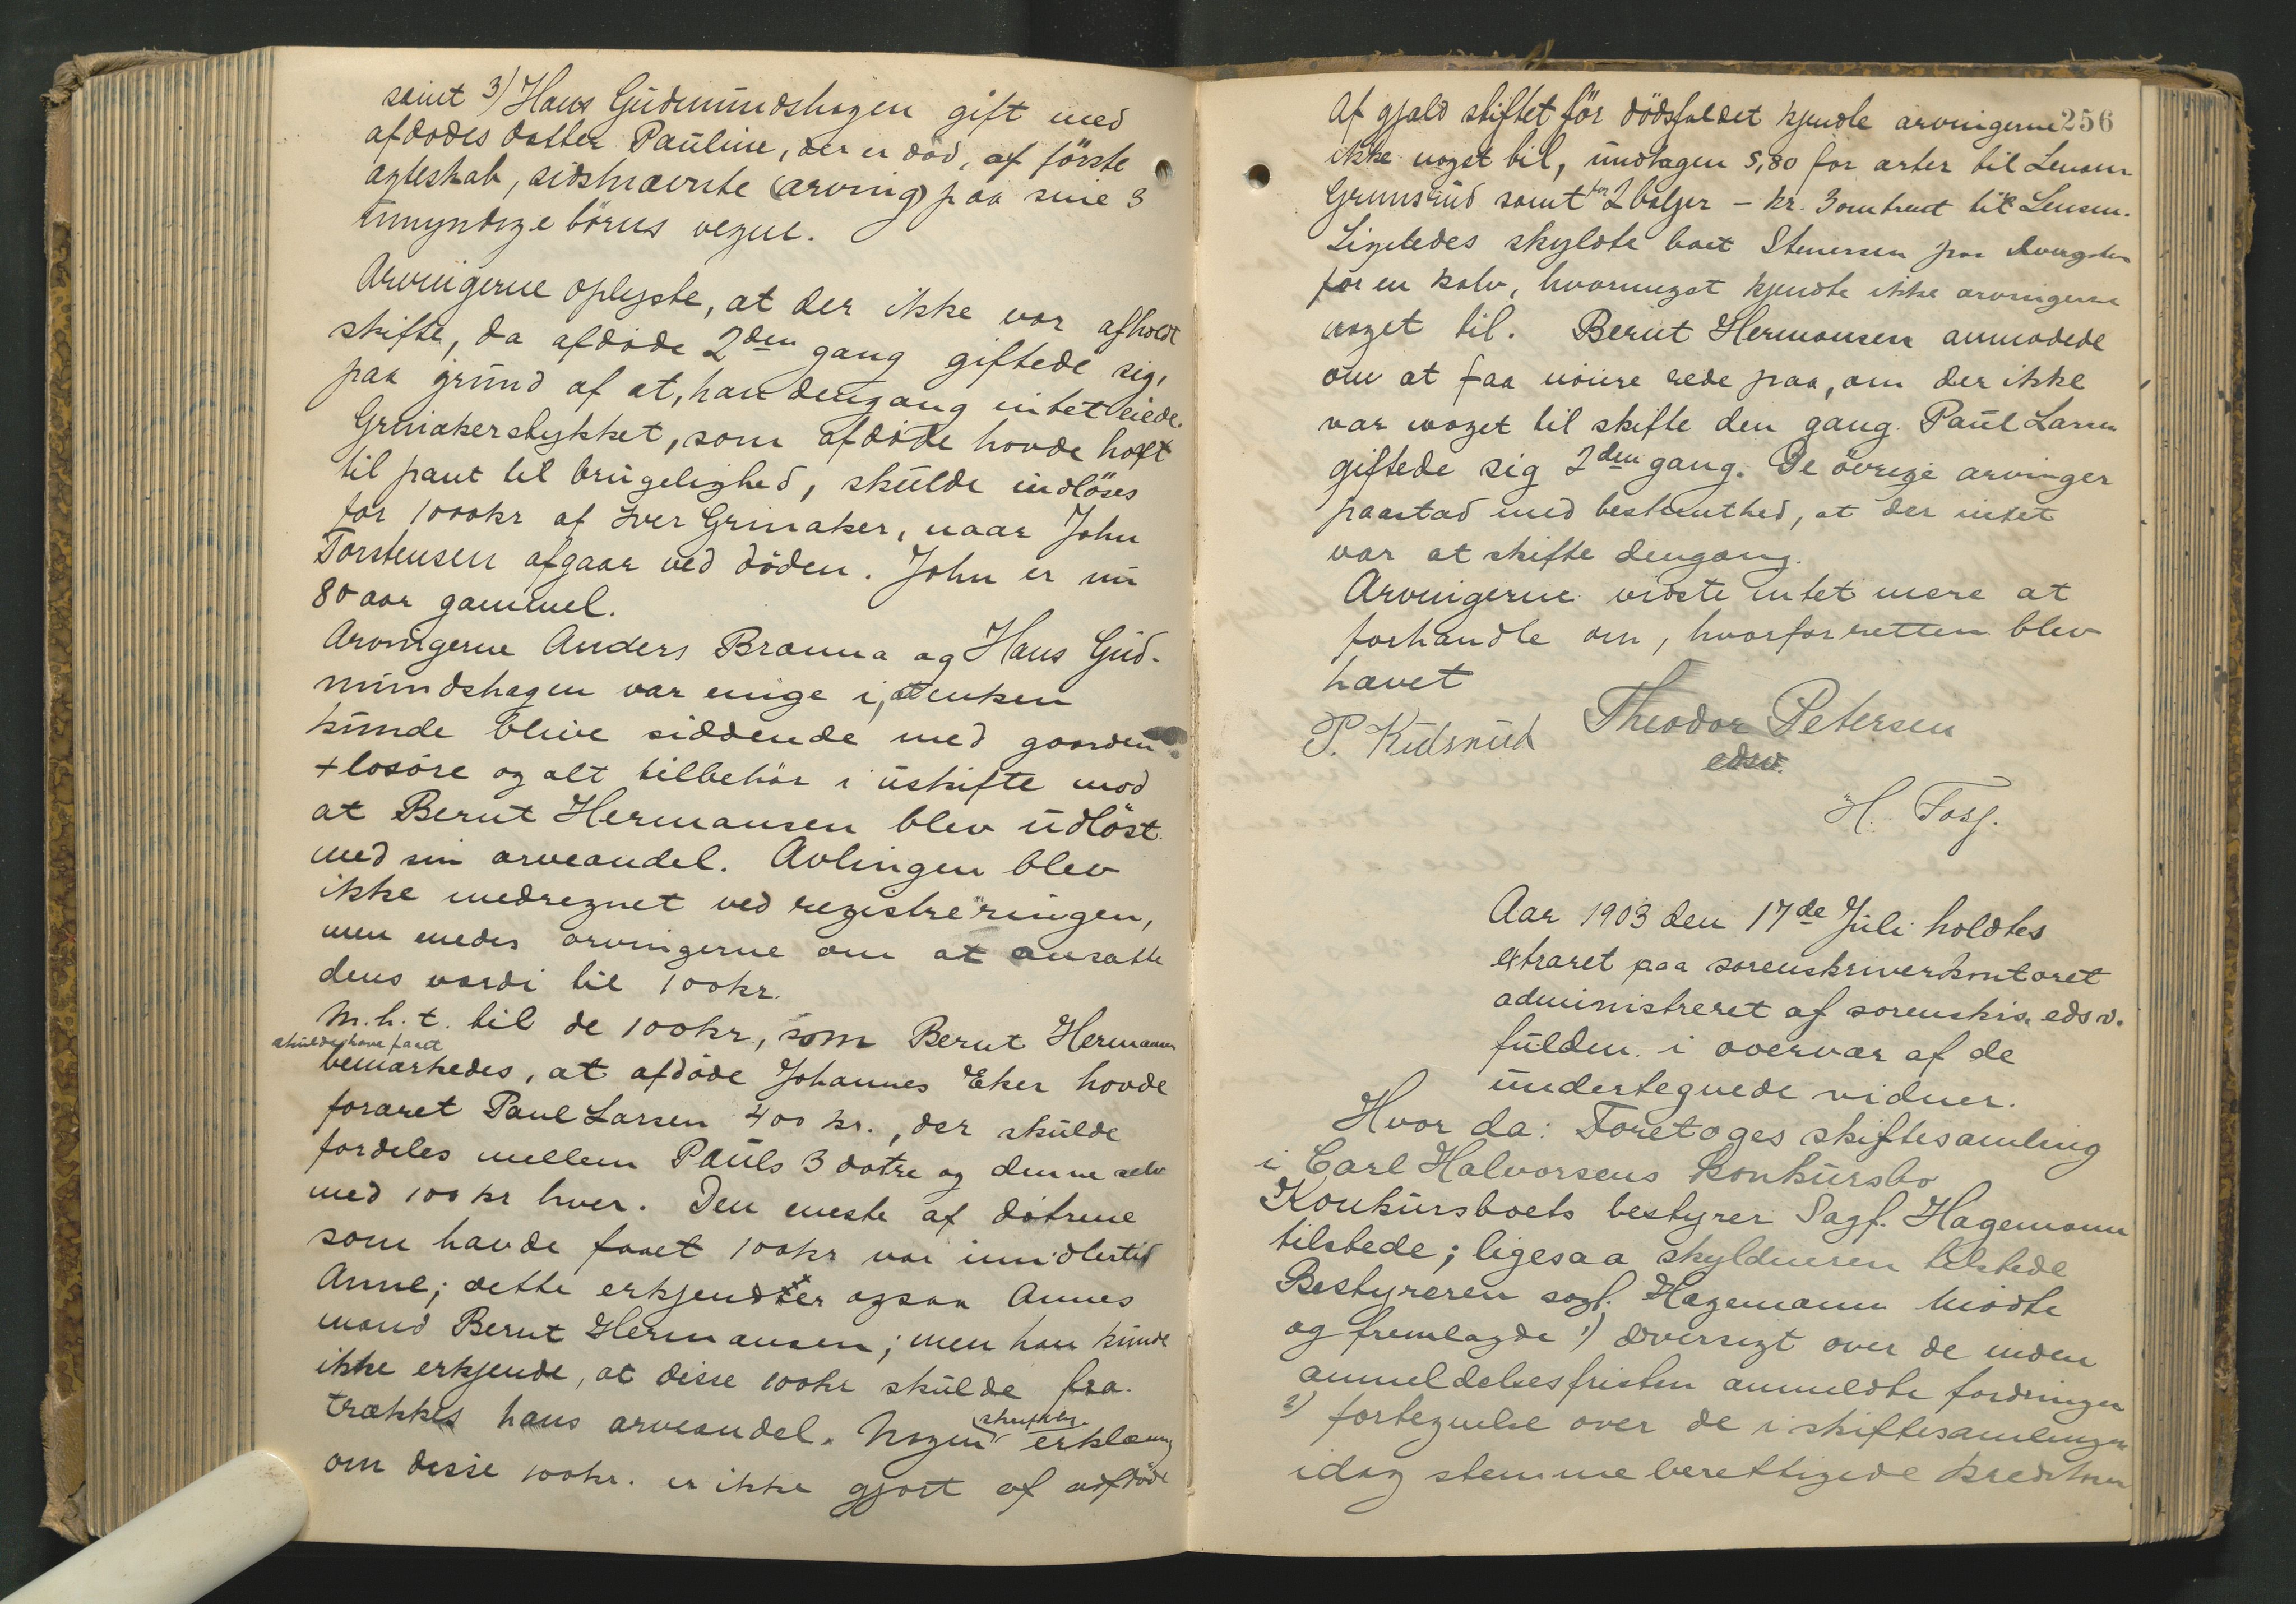 samt 3) Hans Gudmundshagen gift med
afdødes datter Pauline, der er död, af förste
ægteskab, sidstnævnte (arving) paa sine 3
umyndige börns vegne.
Arvingerne oplyste, at der ikke var afholdt
skifte, da afdøde 2den gang giftede sig,
paa grund af at, han dengang intet eiede.
Grinakerstykket, som afdöde havde havt
til pant til brugelighed, skulde indlöses
for 1000kr af Iver Grinaker, naar John
Torstensen afgaar ved döden. John er nu
80 aar gammel.
Arvingerne Anders Branna og Hans Gud-
mundshagen var enige i, at enken
kunde blive siddende med gaarden
+ losöre og alt tilbehör i uskifte mod
at Bernt Hermansen blev udlöst
med sin arveandel. Avlingen blev
ikke medregnet ved registreringen,
men enedes arvingerne om at ansætte
dens værdi til 100kr.
M.h.t. til de 100kr, som Bernt Hermansen
skulde have faaet
bemærkedes, at afdöde Johannes Eker havde
foræret Paul Larsen 400 kr., der skulde
fordeles mellem Pauls 3 døtre og denne selv
med 100 kr hver. Den eneste af døtrene
som havde faaet 100kr var imidlertid
Anne; dette erkjendter ogsaa Annes
mand Bernt Hermansen; men han kunde
ikke erkjende, at disse 100kr skulde fra-
trækkes hans arveandel. Nogen skriftlig erklæring
om disse 100kr. er ikke gjort af afdöde
256
Af gjæld stiftet för dödsfaldet kjendte arvingerne
ikke noget til, undtagen 5,80 for arter til Lensm.
Grimsrud samt for 2 bolger - kr. 3 omtrent til Lensm.
Ligeledes skyldte boet Stenersen paa
for en kalv, hvormeget kjendte ikke arvingerne
noget til. Bernt Hermansen anmodede
om at faa nöiere rede paa, om der ikke
var noget til skifte den gang Paul Larsen
giftede sig 2den gang. De övrige arvinger
paastod med bestemthed, at der intet
var at skifte dengang.
Arvingerne vidste intet mere at
forhandle om, hvorfor retten blev
hævet
Theodor Petersen
P. Kidsrud
edsv.
H. Foss.
Aar 1903 den 17de Juli holdtes
extraret paa sorenskriverkontoret
administreret af sorenskr. edsv.
fuldm. i overvær af de
undertegnede vidner.
Hvor da: Foretoges skiftesamling
i Carl Halvorsens konkursbo
Konkursboets bestyrer Sagf. Hagemann
tilstede; ligesaa skyldneren tilstede
Bestyreren sagf. Hagemann mödte
og fremlagde 1) oversigt over de inden
anmeldelsesfristen anmeldte fordringer
2) fortegnelse over de i skiftesamlingen
idag stemmeberettigede kreditorer